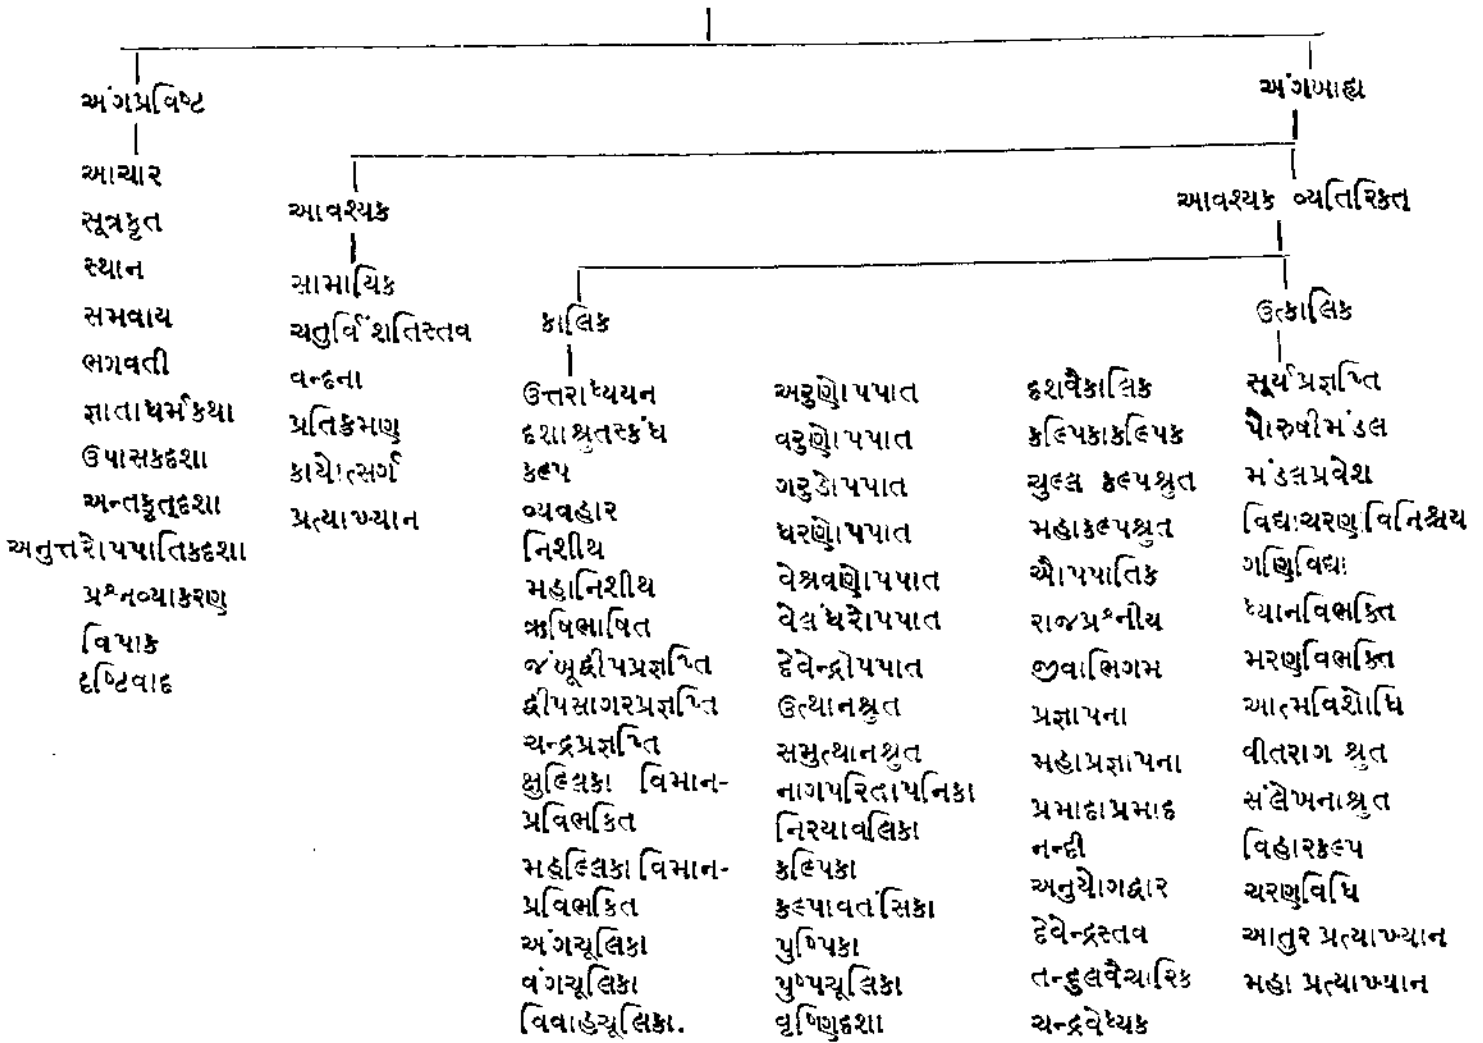 અંગપ્રવિષ્ટ
અંગબાહ્ય
આચાર
સૂત્રકૃત
સ્થાન
સમવાય
ભગવતી
જ્ઞાતાધર્મકથા
ઉપાસકદશા
અન્તકૃત્દશા
અનુત્તરોપપાતિકદશા
પ્રશ્નવ્યાકરણ
વિપાક
દૃષ્ટિવાદ
આવશ્યક
સામાયિક
ચતુર્વિંશતિસ્તવ
વન્દના
પ્રતિક્રમણ
કાયોત્સર્ગ
પ્રત્યાખ્યાન
આવશ્યક વ્યતિરિક્ત
કાલિક
ઉત્તરાધ્યયન
દશાશ્રુતસ્કંધ
કલ્પ
વ્યવહાર
નિશીથ
મહાનિશીથ
ઋષિભાષિત
જંબૂદ્વીપપ્રજ્ઞપ્તિ
દ્વીપસાગરપ્રજ્ઞપ્તિ
ચન્દ્રપ્રજ્ઞપ્તિ
ક્ષુલ્લિકા વિમાન-
પ્રવિભક્તિ
મહલ્લિકા વિમાન-
પ્રવિભક્તિ
અંગચૂલિકા
વંગચૂલિકા
વિવાહચૂલિકા.
અરુણોપપાત
વરુણોપપાત
ગરુડોપપાત
ધરણોપપાત
વેશ્રવણોપપાત
વેલંધરોપપાત
દેવેન્દ્રોપપાત
ઉત્થાનશ્રુત
સમુત્થાનશ્રુત
નાગપરિતાપનિકા
નિરયાવલિકા
કલ્પિકા
કલ્પાવતંસિકા
પુષ્પિકા
પુષ્પચૂલિકા
વૃષ્ણિદશા
ઉત્કાલિક
દશવૈકાલિક
કલ્પિકાકલ્પિક
ચુલ્લ કલ્પશ્રુત
મહાકલ્પશ્રુત
ઔપપાતિક
રાજપ્રશ્નીય
જીવાભિગમ
પ્રજ્ઞાપના
મહાપ્રજ્ઞાપના
પ્રમાદાપ્રમાદ
નન્દી
અનુયોગદ્વાર
દેવેન્દ્રસ્તવ
તન્દુલવૈચારિક
ચન્દ્રવેધ્યક
સૂર્યપ્રજ્ઞપ્તિ
પૌરુષીમંડલ
મંડલપ્રવેશ
વિદ્યાચરણવિનિશ્ચય
ગણિવિદ્યા
ધ્યાનવિભક્તિ
મરણવિભક્તિ
આત્મવિશોધિ
વીતરાગ શ્રુત
સંલેખનાશ્રુત
વિહારકલ્પ
ચરણવિધિ
આતુર પ્રત્યાખ્યાન
મહા પ્રત્યાખ્યાન